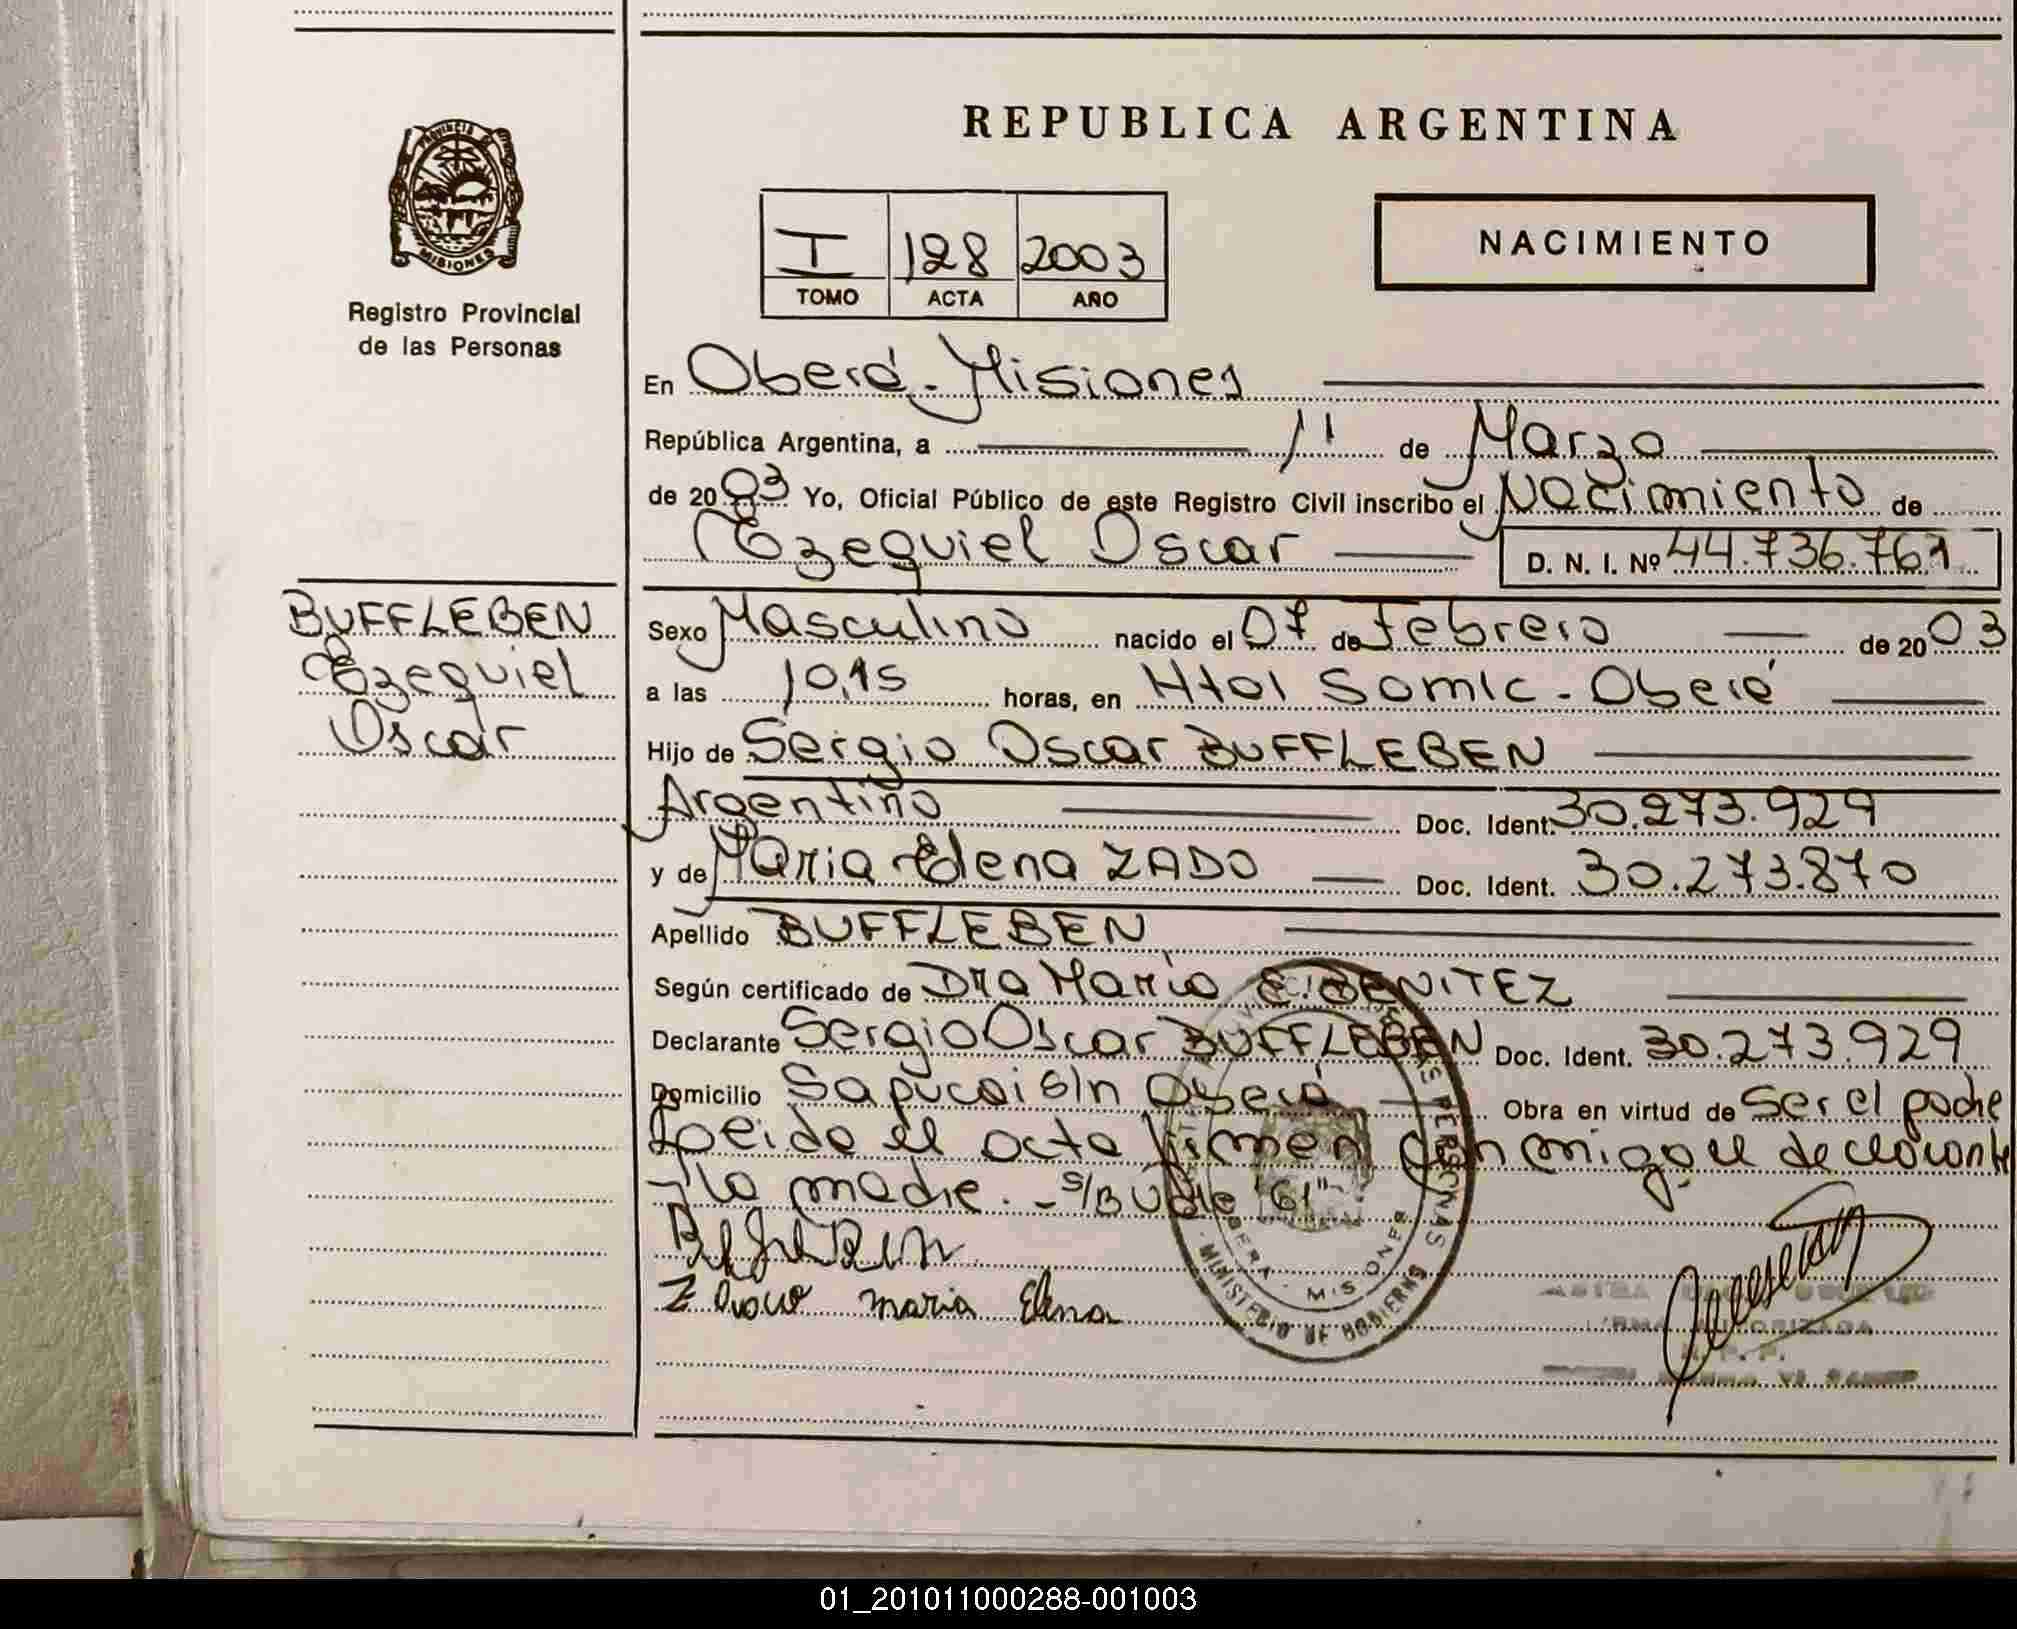 REPUBLICA ARGENTINA
PROVINCIA
MISIONES
Registro Provincial
de las Personas
I 128 2003
TOMO ACTA AÑO
NACIMIENTO
En Oberá - Misiones
República Argentina, a 11 de Marzo
de 2003 Yo, Oficial Público de este Registro Civil inscribo el Nacimiento de
Ezequiel Oscar D. N. I. Nº 44.736.761
BUFFLEBEN
Ezequiel
Oscar
Sexo Masculino nacido el 07 de Febrero de 2003
a las 10,15 horas, en Htal Samic - Oberá
Hijo de Sergio Oscar BUFFLEBEN
Argentino Doc. Ident. 30.273.929
y de Maria Elena ZADO Doc. Ident. 30.273.870
Apellido BUFFLEBEN
Según certificado de Dra Maria E. BENITEZ
Declarante Sergio Oscar BUFFLEBEN Doc. Ident. 30.273.929
Domicilio Sapucai s/n Oberá Obra en virtud de Ser el padre
Leida el acta firman conmigo el declarante
y la madre. - S/B Vale "61"
maria Elena
PERSONAS
MINISTERIO DE GOBIERNO
OBERA - MISIONES
01_201011000288-001003